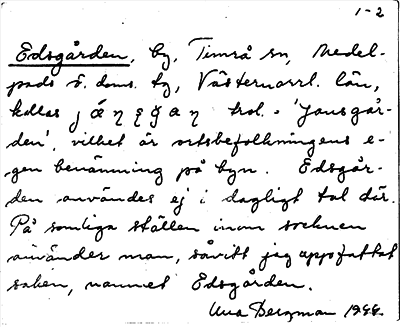 1-2
Edsgården, by, Timrå sn, Medel-
pads ö. doms. tg, Västernorrl. län,
kallas hol. = 'Jansgår-
den', vilket är ortsbefolkningens e-
gen benämning på byn. Edsgår-
den användes ej i dagligt tal där.
På somliga ställen inom socknen
använder man, såvitt jag uppfattat
saken, namnet Edsgården.
Bergman 1944.